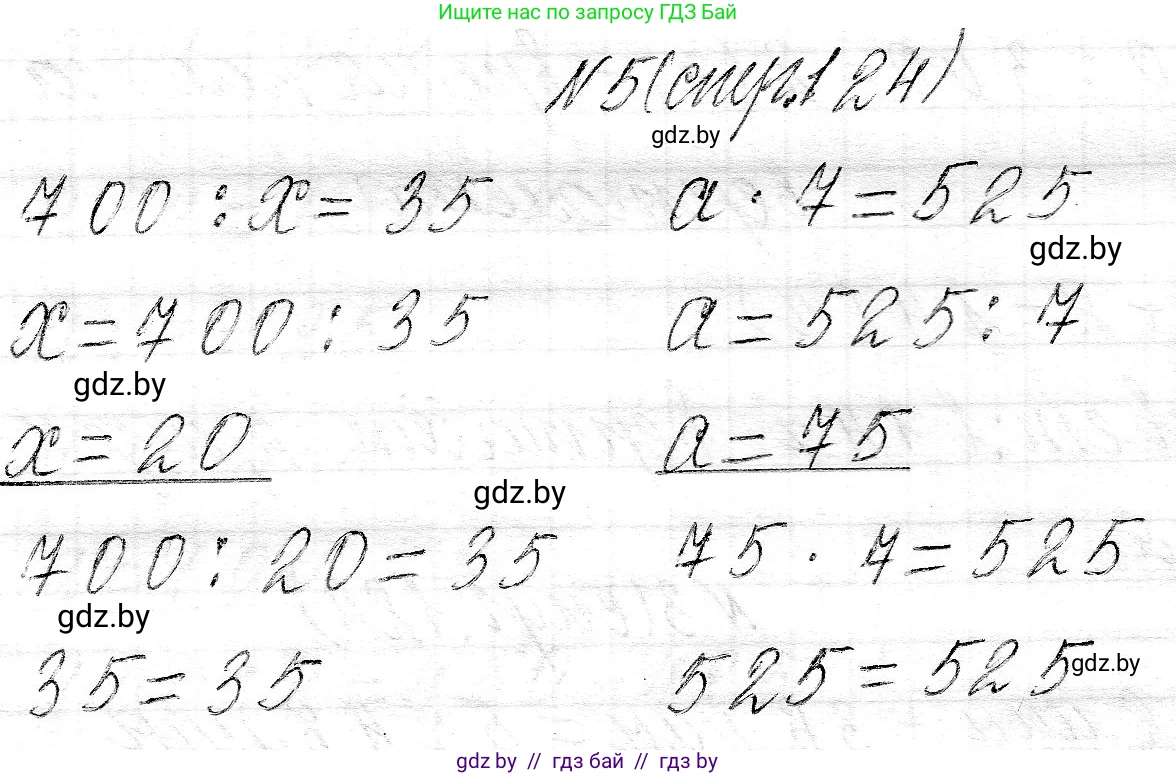 Ищите нас по запросу ГДЗ Бай
N5(стр.124)
gdz.by
700 : x = 35
a · 7 = 525
gdz.by
x = 700 : 35
a = 525 : 7
gdz.by
x = 20
a = 75
gdz.by
700 : 20 = 35
75 · 7 = 525
gdz.by
35 = 35
525 = 525
gdz.by
gdz.by // гдз бай // гдз by